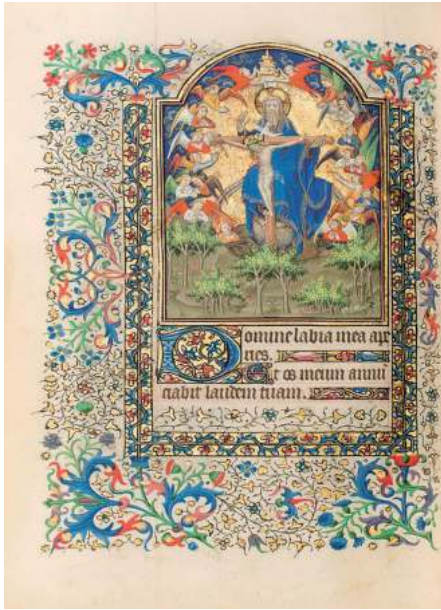 Domine labia mea ape
ries.
Et os meum annu
ciabit laudem tuam.